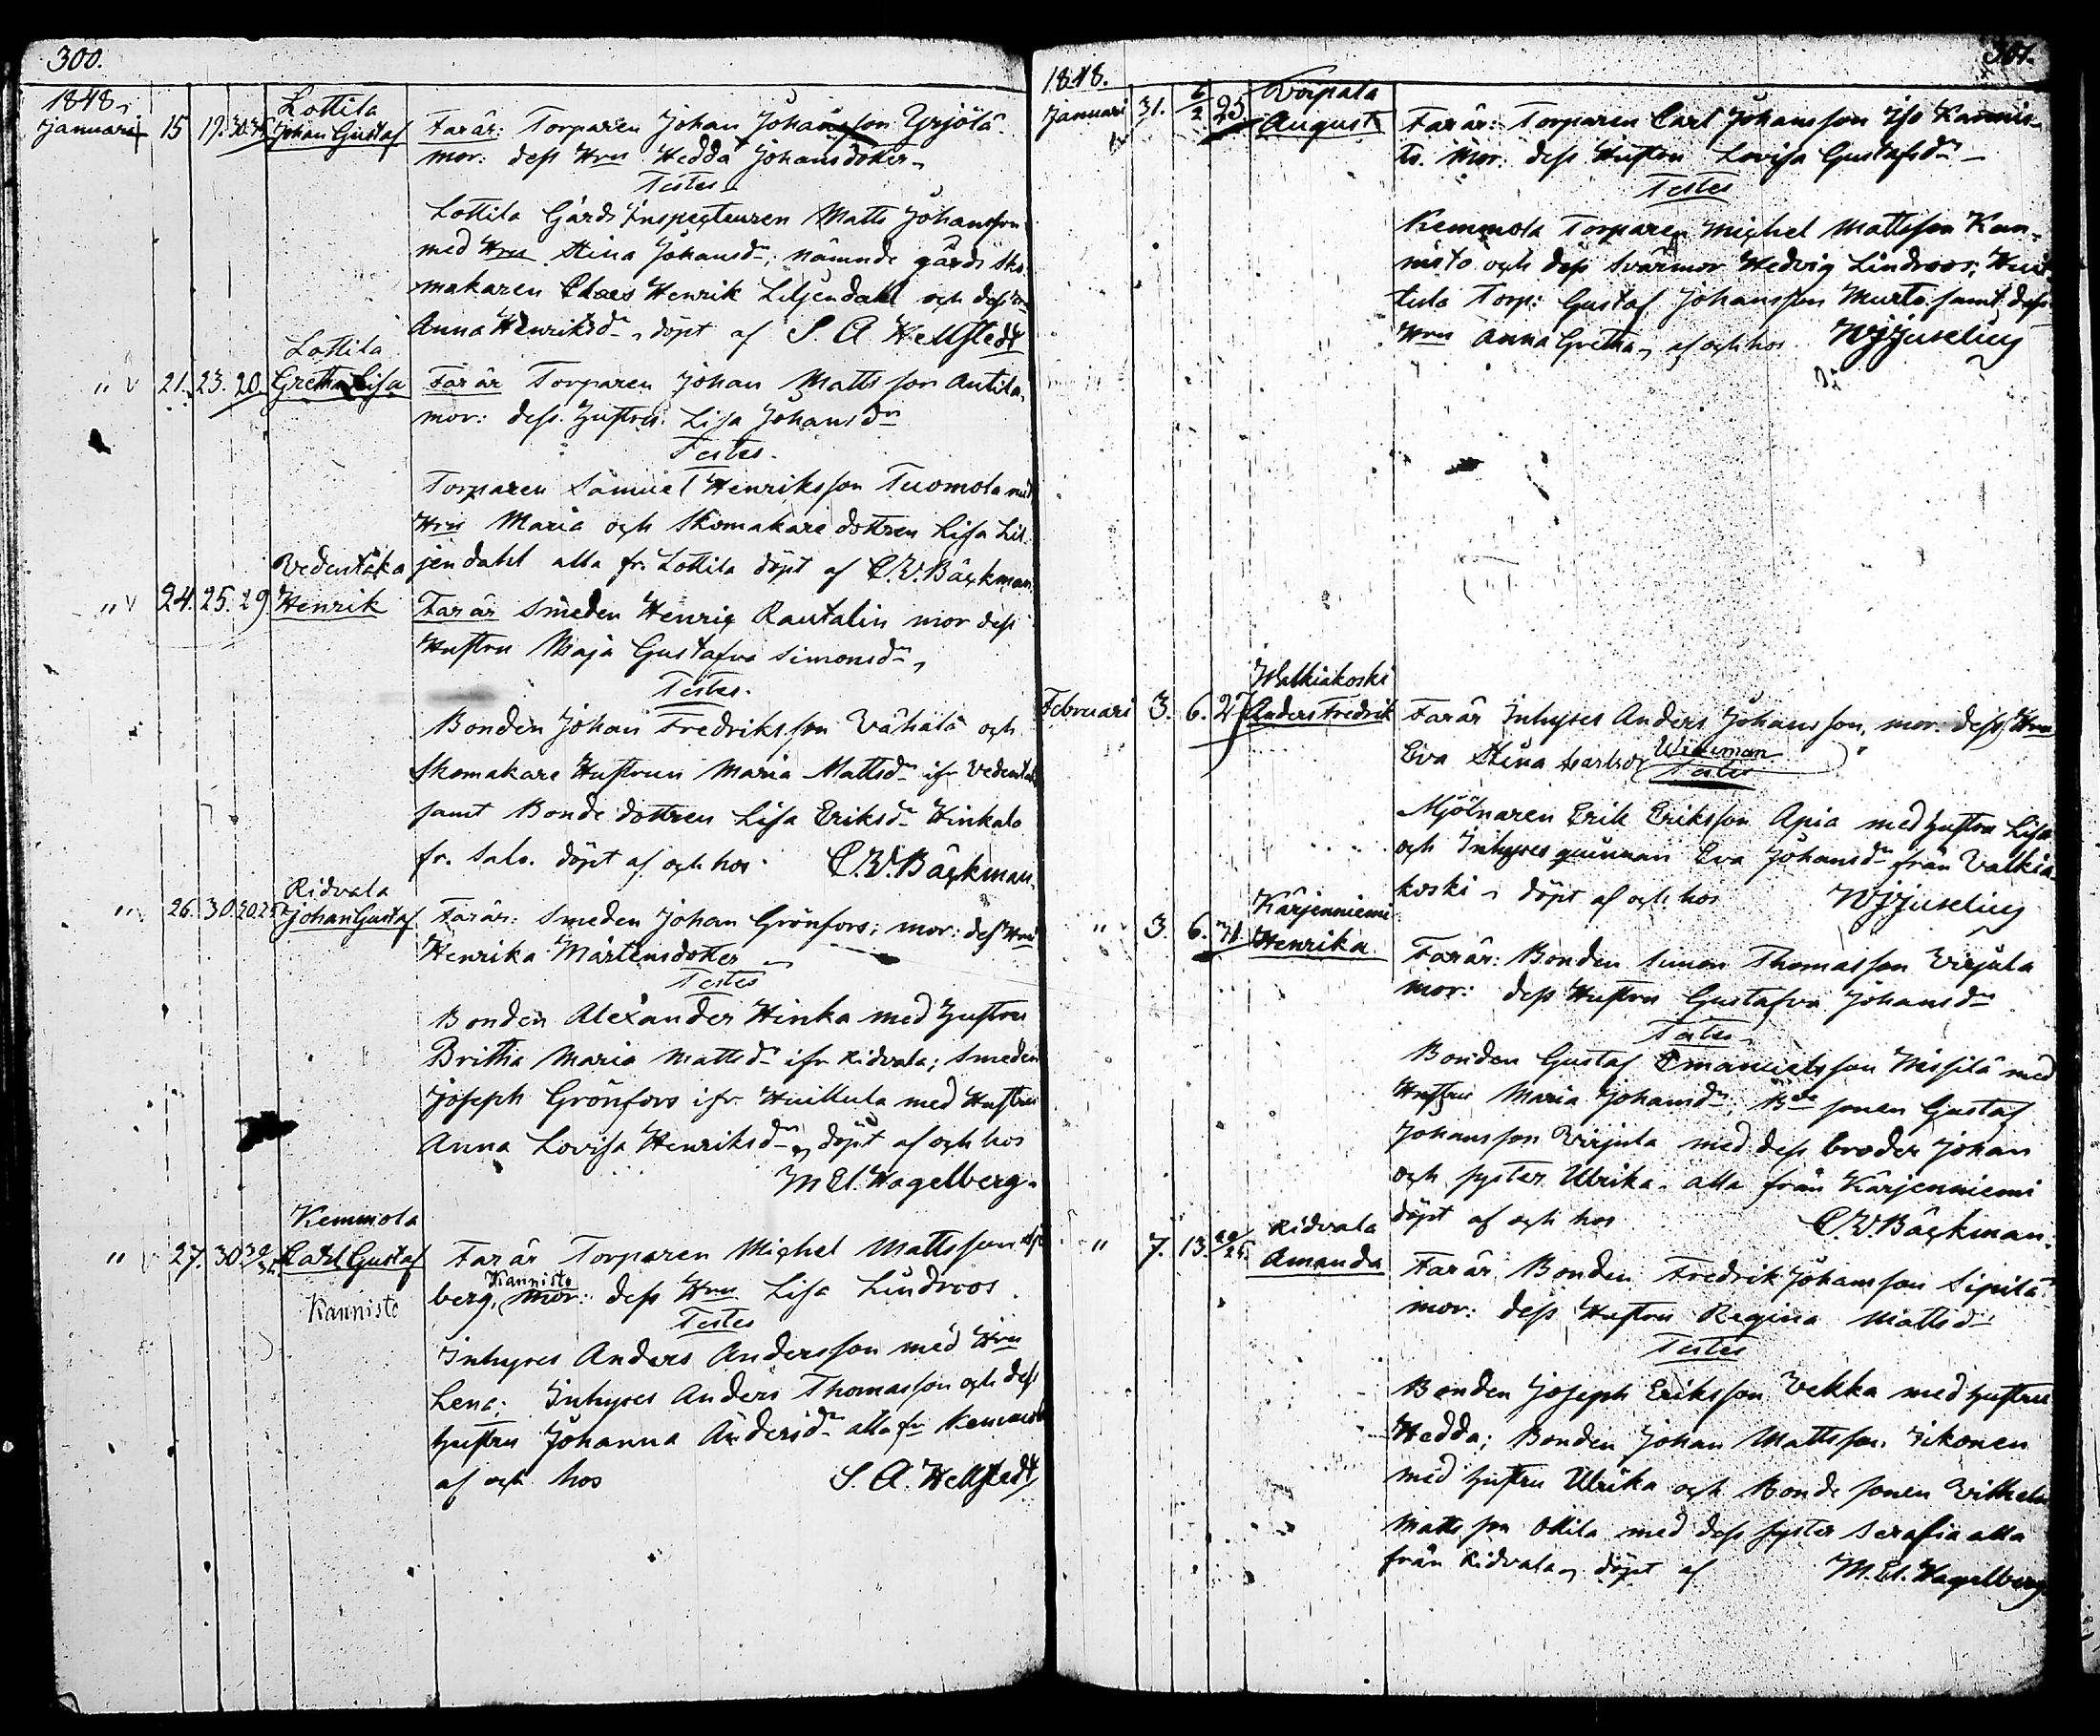 300.
1848.
Januari 15 19. 30. 35 Lottila
Johan Gustaf
Far är: Torparen Johan Johansson Yrjölä.
mor: dess Hru Hedda Johansdotter
Testes
Lottila Gårds Inspecteuren Matts Johansson
med Hru Stina Johansdr, nämnde gårds Sko
makaren Claes Henrik Liljendahl och dess Hru
Anna Henriksdr, döpt af S. A. Hellstedt
" 21. 23. 20. Lottila
Gretha Lisa
Far är Torparen Johan Mattsson Antila
mor: dess Hustru Lisa Johansdr
Testes.
Torparen Samuel Henriksson Tuomola med
Hru Maria och Skomakare dottren Lisa Lil-
jendahl alla fr. Lottila döpt af C. W. Bäckman
" 24. 25. 29 Vedentaka
Henrik
Far är Smeden Henric Rautalin mor dess
Hustru Maja Gustafva Simonsdr,
Testes.
Bonden Johan Fredriksson Vähälä och
Skomakare Hustrun Maria Mattsdr ifr Vedentak
samt Bonde dottren Lisa Eriksdr Hinkala
fr. Salo. döpt af och hos C. W. Bäckman.
" 26. 30. 20.25 Ridvala
Johan Gustaf
Far är: Smeden Johan Grönfors; mor: dess Hru
Henrika Mårtensdotter
Testes
Bonden Alexander Hinka med Hustru
Britha Maria Mattsdr ifr Ridvala; Smeden
Joseph Grönfors ifr Huillula med Hustru
Anna Lovisa Henriksdr, döpt af och hos
M. El. Hagelberg.
" 27. 30. 30/35 Kemmola
Carl Gustaf
Kannisto
Far är Torparen Michel Mattsson
berg, Kannisto mor: dess Hru Lisa Lindroos
Testes
Inhyses Anders Andersson med Hru
Lena; Inhyses Anders Thomasson och dess
Hustru Johanna Andersdr alla fr Kemmola
af och hos S. A. Hellstedt
301.
1848.
Januari 31. 6/2 25 Voipala
August
Far är: Torparen Carl Johansson Iso Kannis-
to. Mor: dess Hustru Lovisa Gustafsdr
Testes
Kemmola Torparen Michel Mattsson Kan-
nisto och dess Svärmor Hedvig Lindroos;
tula Torp: Gustaf Johansson Murto samt dess
Hru Anna Gretha, af och hos W J Juselius
Februari 3. 6. 27 Walkiakoski
Anders Fredrik
Far är Inhyses Anders Johansson, mor: dess Hru
Eva Stina Wideman
Testes
Mjölnaren Erik Eriksson Apia med Hustru Lisa
och Inhyses quinnan Eva Johansdr från Valkia-
koski döpt af och hos W J Juselius
" 3. 6. 31 Kärjenniemi
Henrika
Far är: Bonden Simon Thomasson Virjula
mor: dess Hustru Gustafva Johansdr
Testes
Bonden Gustaf Emanuelsson Nissilä med
Hustru Maria Johansdr, Bde sonen Gustaf
Johansson Virjula med dess broder Johan
och syster Ulrika, alla från Kärjenniemi
döpt af och hos C. W. Bäckman.
" 7. 13. 20/25 Ridvala
Amanda
Far är Bonden Fredrik Johansson Sipilä
mor: dess Hustru Regina Mattsdr
Testes
Bonden Joseph Eriksson Vekka med Hustru
Hedda; Bonden Johan Mattsson Iikonen
med Hustru Ulrika och Bonde sonen Vilhelm
Mattsson Ottila med dess syster Serafia alla
från Ridvala, döpt af M. El. Hagelberg